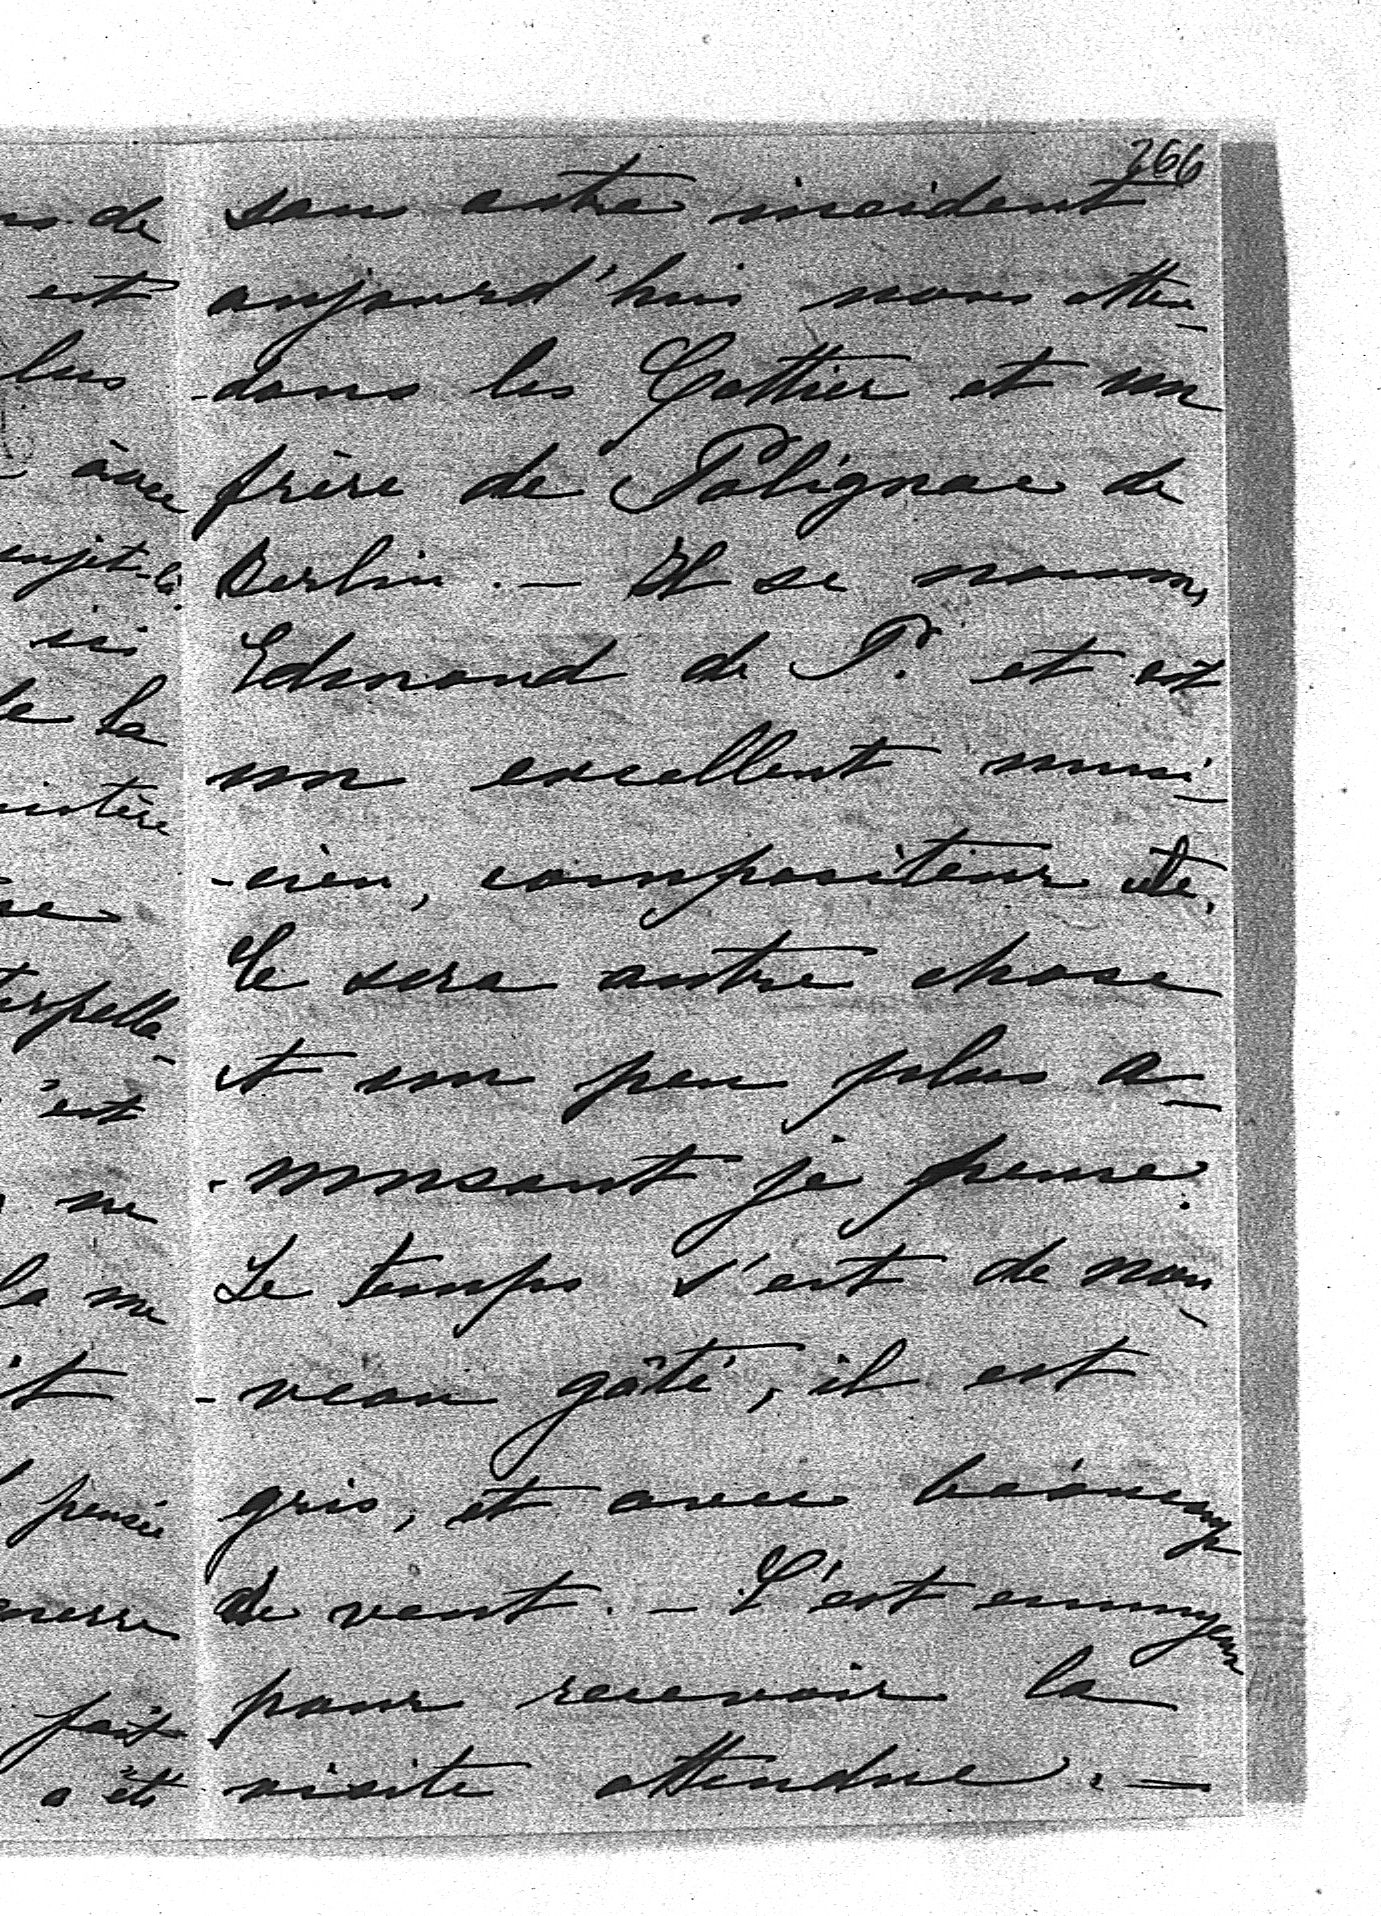 266
sans autre incident
aujourd'hui nous atten-
-dons les Gottier et un
frère de Polignac de
Berlin. — Il se nomme
Edmond de P. et est
un excellent musi-
-cien, compositeur etc.
Ce sera autre chose
et un peu plus a-
-musant je pense.
Le temps s'est de nou-
-veau gâté, il est
gris, et avec beaucoup
de vent. — C'est ennuyeux
pour recevoir la
visite attendue. —
ns de
est
lus
avec
sujet-là
ici
de la
nistère
se
terpella-
'est
ne
la me
it
pensée
guerre
fait
a été